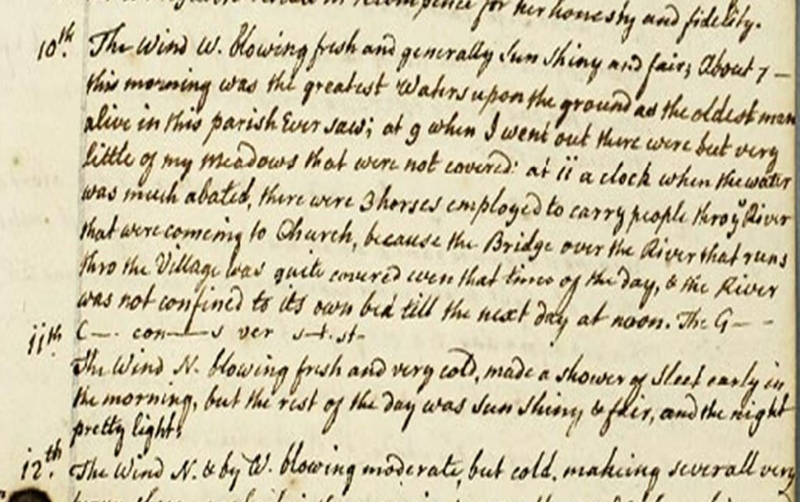 in recompence for her honesty and fidelity.
10th. The Wind W. blowing fresh and generally Sun Shiny and fair; About 7 —
this morning was the greatest Waters upon the ground as the oldest man
alive in this parish Ever saw; at 9 when I went out there were but very
little of my meadows that were not covered: at ii a clock when the water
was much abated, there were 3 horses employed to carry people thro ye River
that were comeing to Church, because the Bridge over the River that runs
thro the Village was quite covered even that time of the day, & the River
was not confined to its own bed till the next day at noon. The G— -
C—. con——s ver s-t.st-
iith. The Wind N. blowing fresh and very cold, made a shower of Sleet early in
the morning, but the rest of the day was Sun Shiny & fair, and the night
pretty light;
12th. The Wind N. & by W. blowing moderate, but cold, making severall very